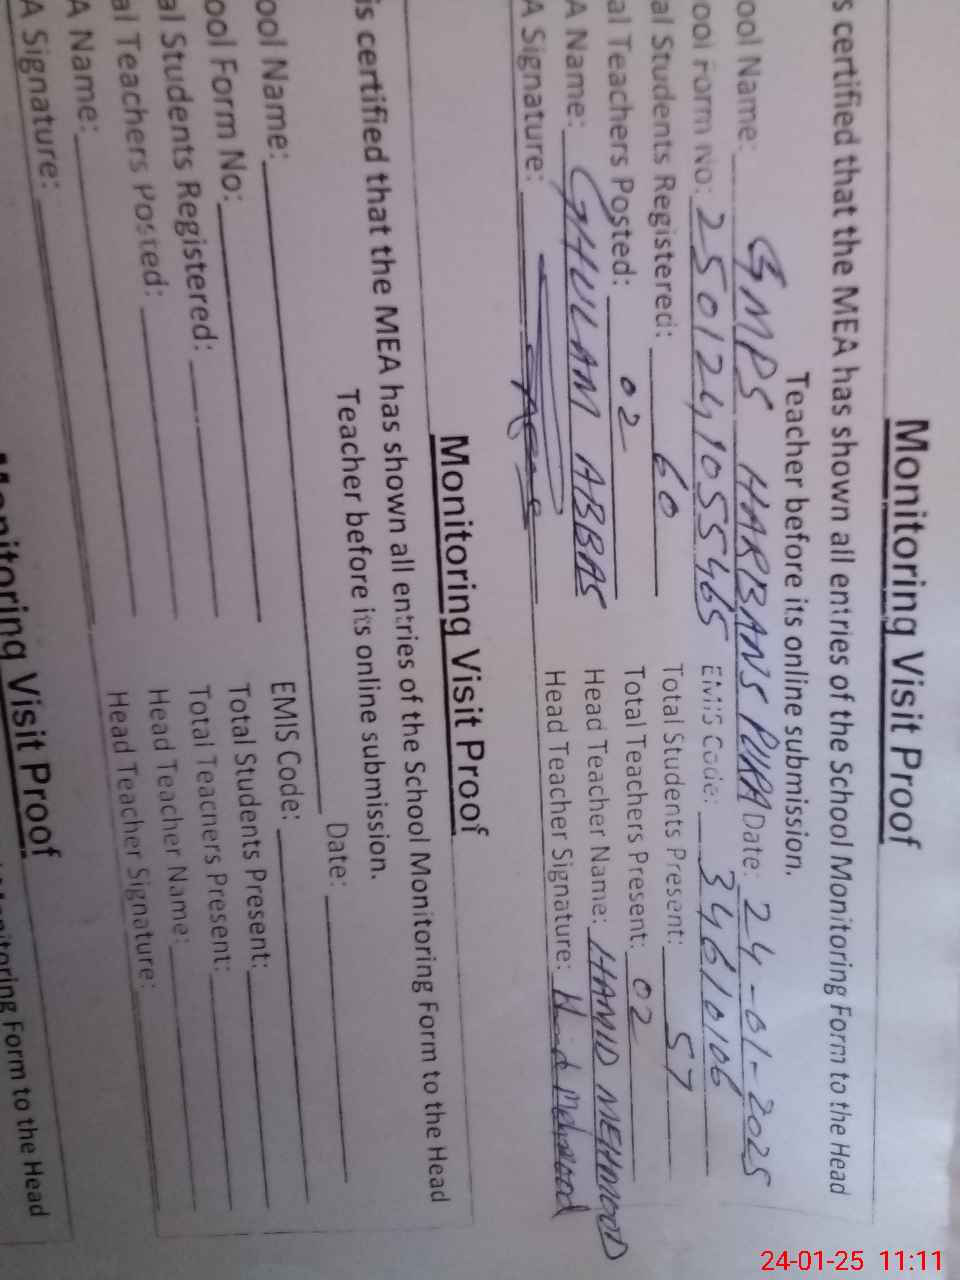 Monitoring Visit Proof
s certified that the MEA has shown all entries of the School Monitoring Form to the Head
Teacher before its online submission.
ool Name: GMPS HARBANS PURA Date: 24-01-2025
ool Form No: 2501241055465 EMIS Code: 34610106
al Students Registered: 60 Total Students Present: 57
al Teachers Posted: 02 Total Teachers Present: 02
A Name: GHULAM ABBAS Head Teacher Name: HAMID MEHMOOD
A Signature: Head Teacher Signature: Mehmood
Monitoring Visit Proof
is certified that the MEA has shown all entries of the School Monitoring Form to the Head
Teacher before its online submission.
ool Name: Date:
ool Form No: EMIS Code:
al Students Registered: Total Students Present:
al Teachers Posted: Total Teachers Present:
A Name: Head Teacher Name:
A Signature: Head Teacher Signature:
Monitoring Visit Proof
Monitoring Form to the Head
24-01-25 11:11